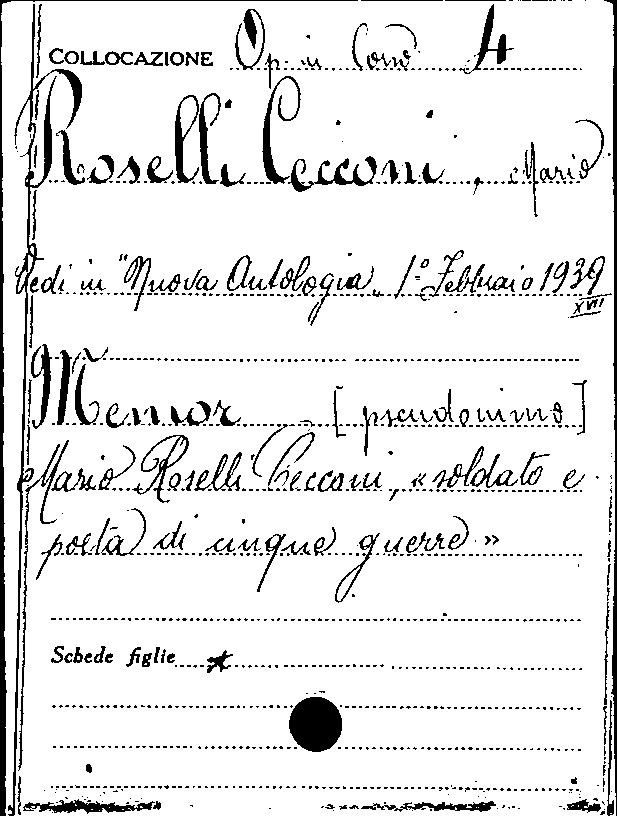 COLLOCAZIONE Op. in Cons 4
Roselli Cecconi, Mario
Vedi in "Nuova Antologia„ 1° Febbraio 1939
XVII
Memor [pseudonimo]
Mario Roselli Cecconi, «soldato e
poeta di cinque guerre»
Schede figlie